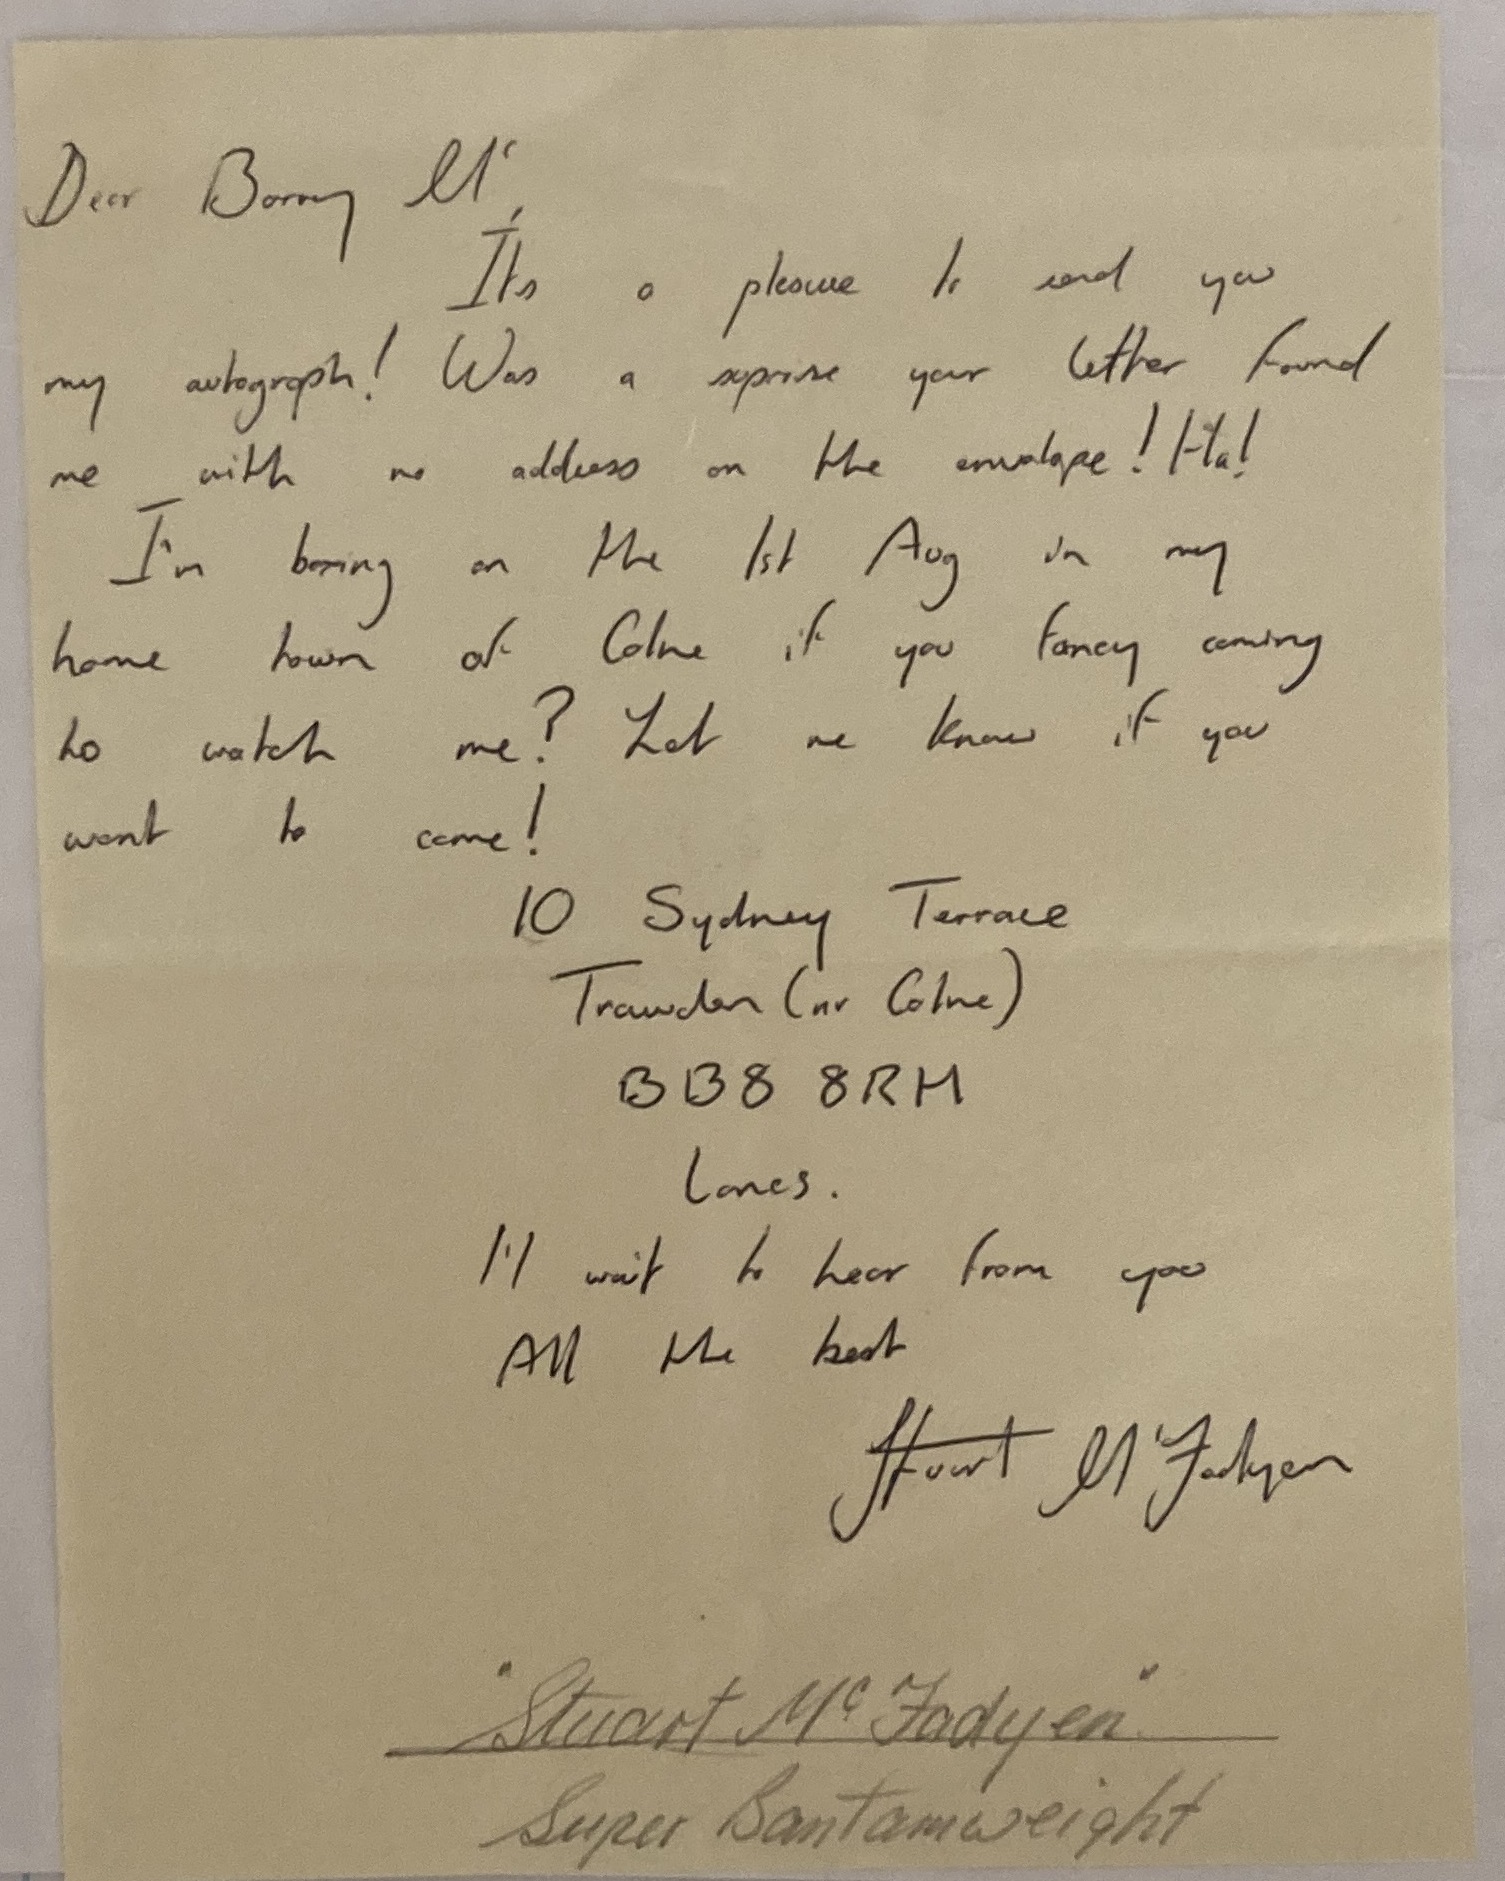 Dear Barry Mc,
Its a pleasure to send you
my autograph! Was a suprise your letter found
me with no address on the envelope! Ha!
I'm boxing on the 1st Aug in my
home town of Colne if you fancy coming
to watch me? Let me know if you
want to come!
10 Sydney Terrace
Trawden (nr Colne)
BB8 8RH
Lancs.
I'l wait to hear from you
All the best
Stuart McFadyen
"Stuart McFadyen"
Super Bantamweight